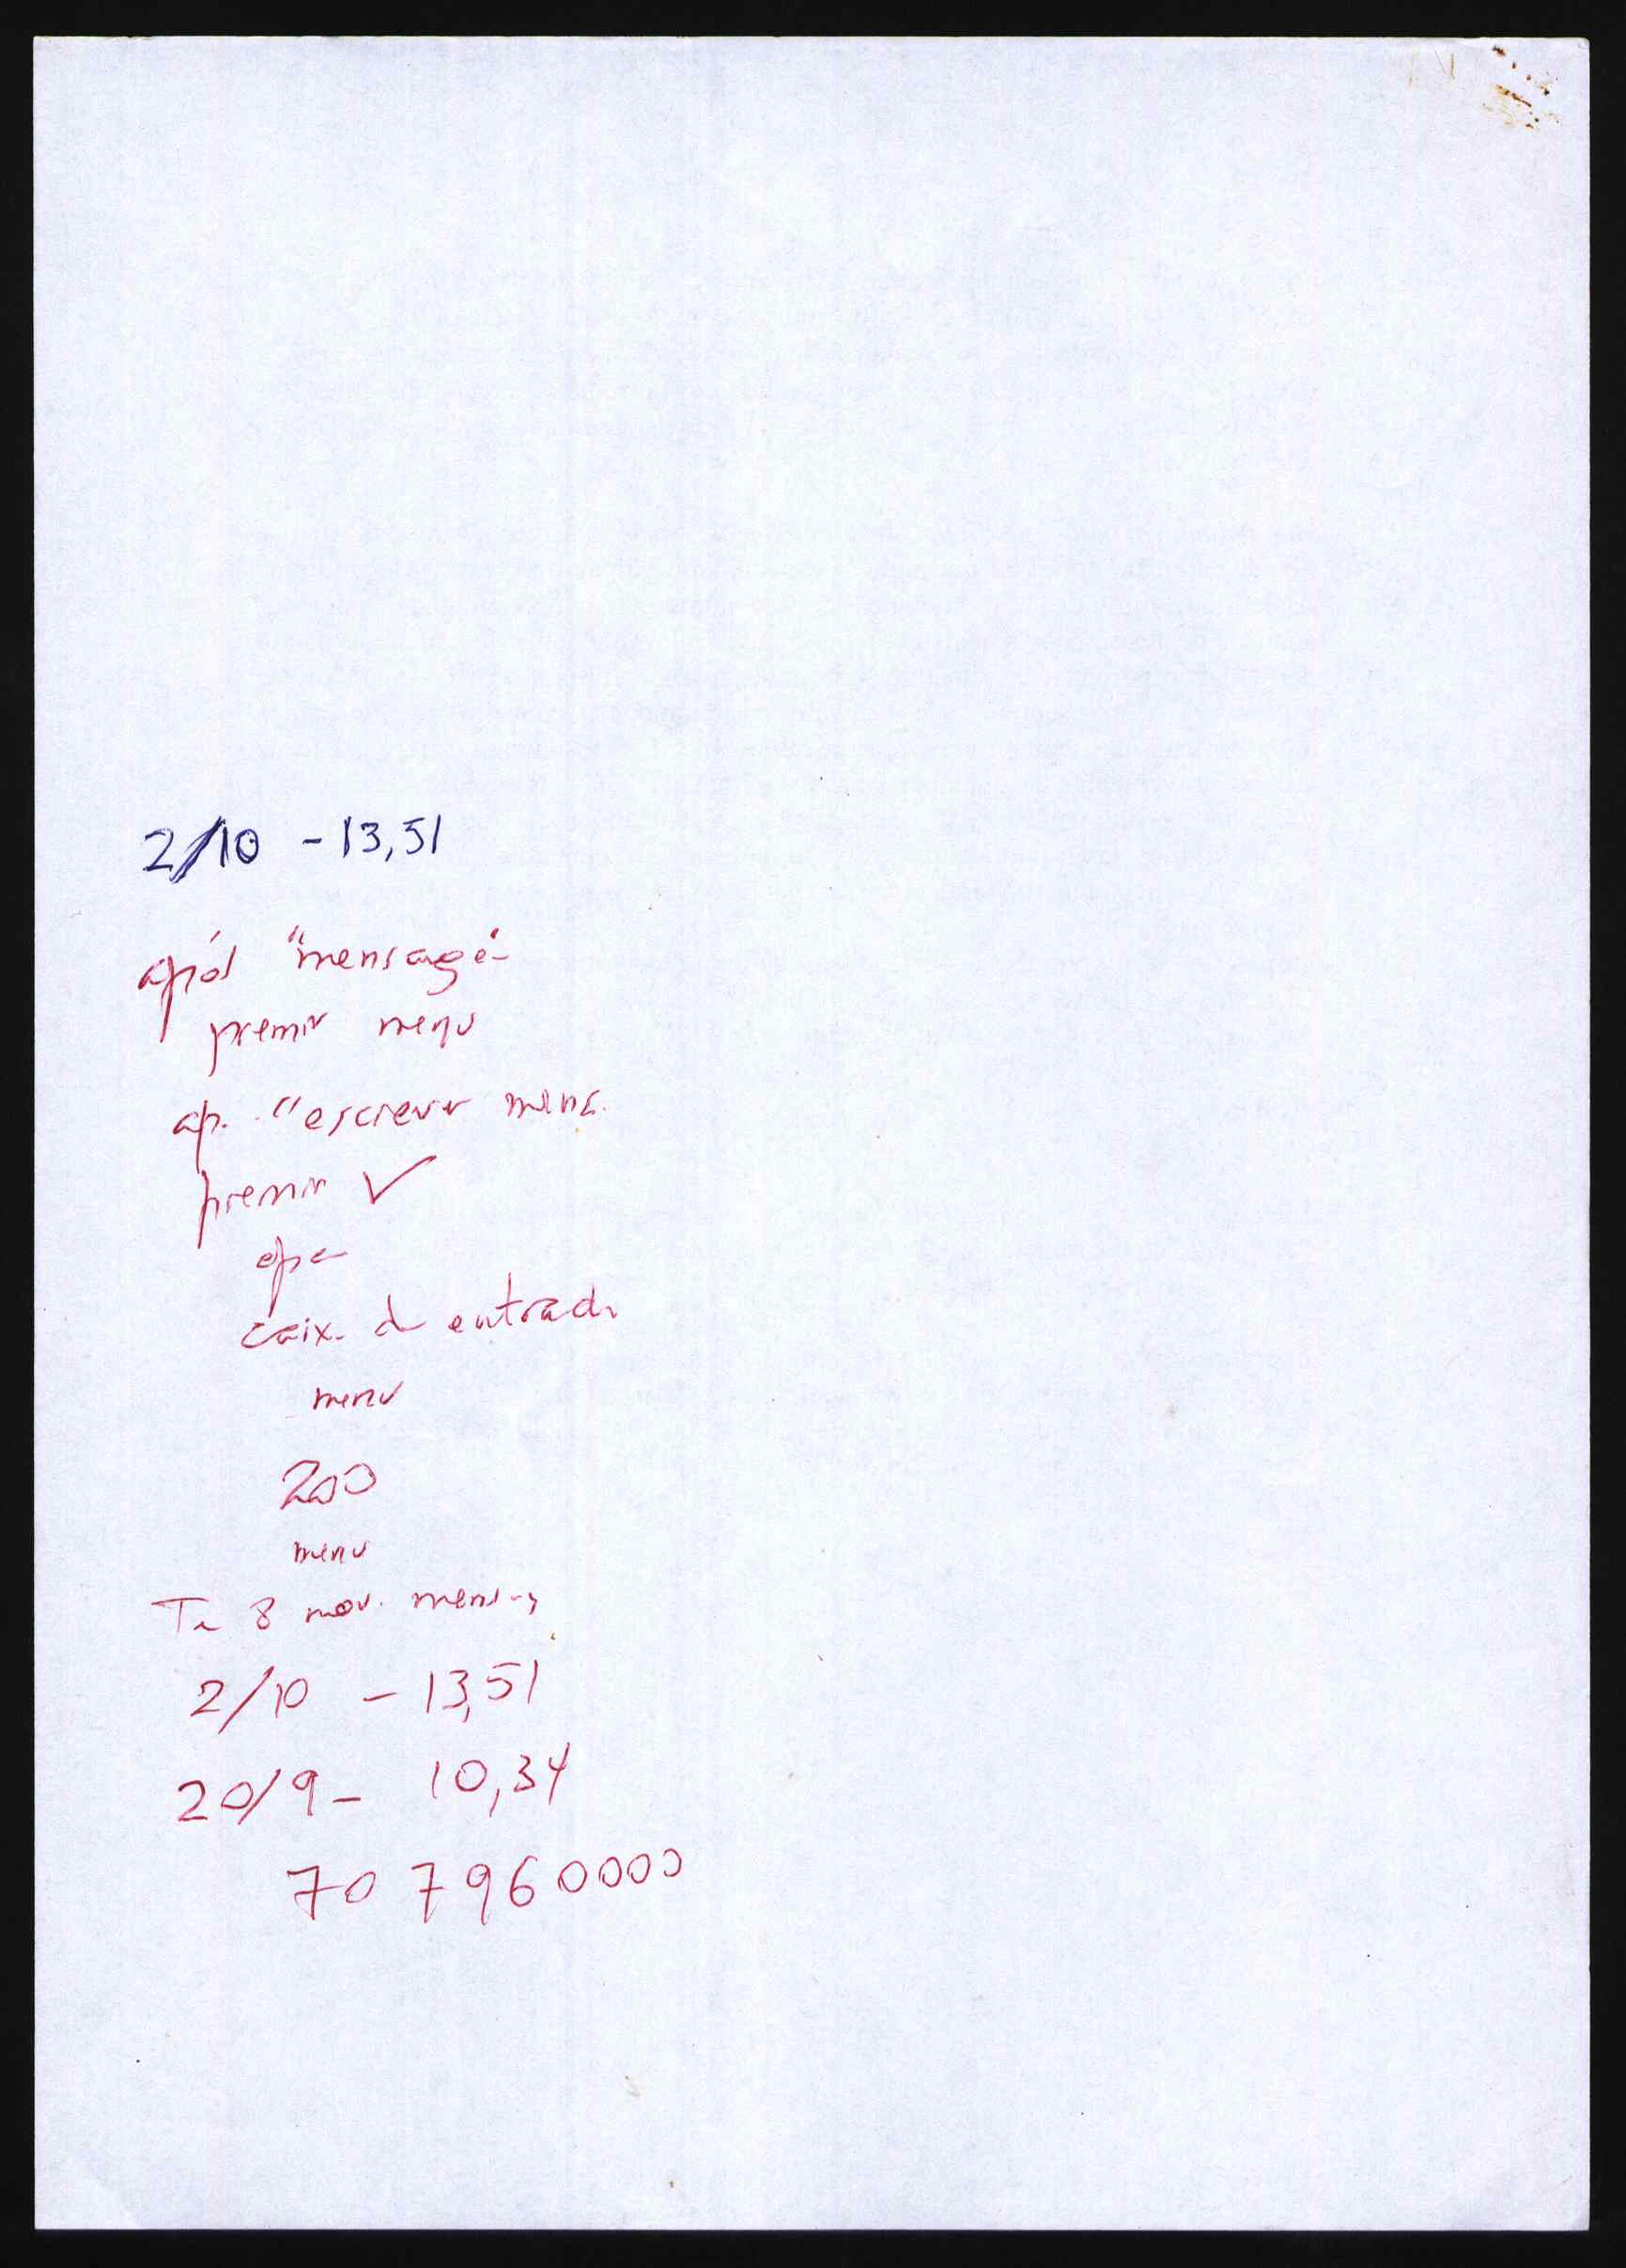 2/10 - 13,51
após "mensage"
premir menu
ap. "escrever mens.
premir ✓
caix. d entrada
menu
200
menu
Te 8 nov. mens
2/10 - 13,51
20/9 - 10,34
70 7 960000